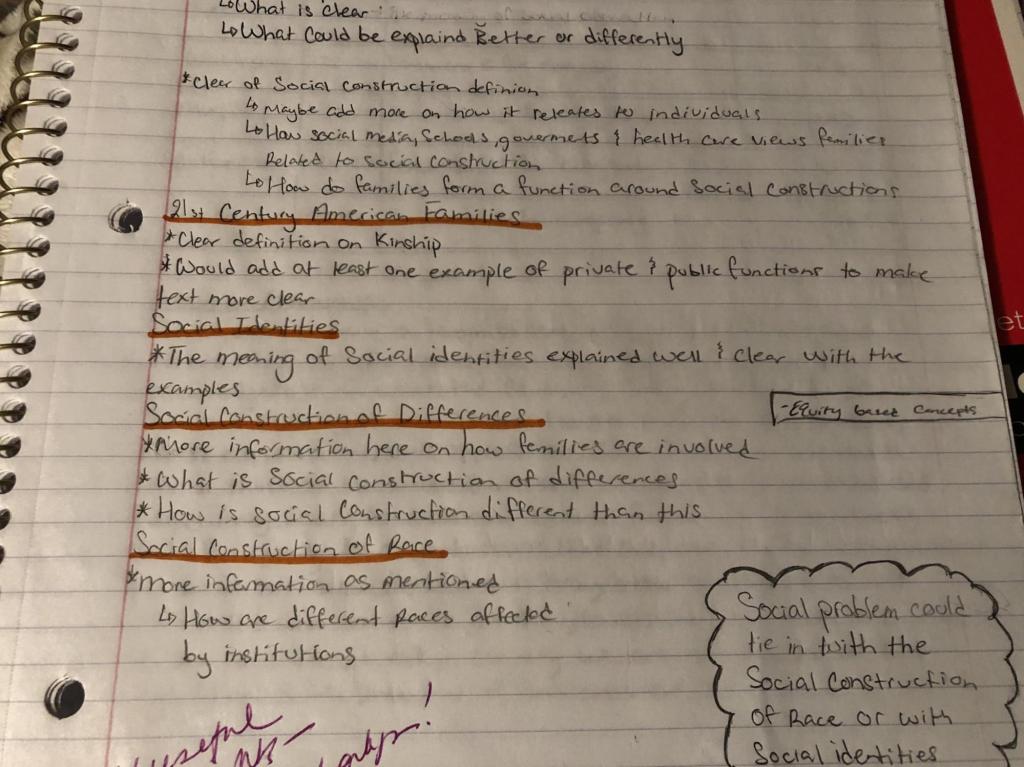 ↳What is clear:
↳What Could be explaind Better or differently
*Clear of Social construction definion
↳Maybe add more on how it releates to individuals
↳How social media, Schools, govermets & health care views families
Related to social construction
↳How do families form a function around Social Constructions
21st Century American Families
*Clear definition on Kinship
*Would add at least one example of private & public functions to make
text more clear
Social Identities
*The meaning of Social identities explained well & clear with the
examples
Social Construction of Differences
-Equity based Concepts
*More information here on how families are involved
*What is Social construction of differences
*How is social Construction different than this
Social Construction of Race
*more infermation as mentioned
↳How are different Races affected
by institutions
Social problem could
tie in with the
Social Construction
Of Race or with
Social identities
useful
et